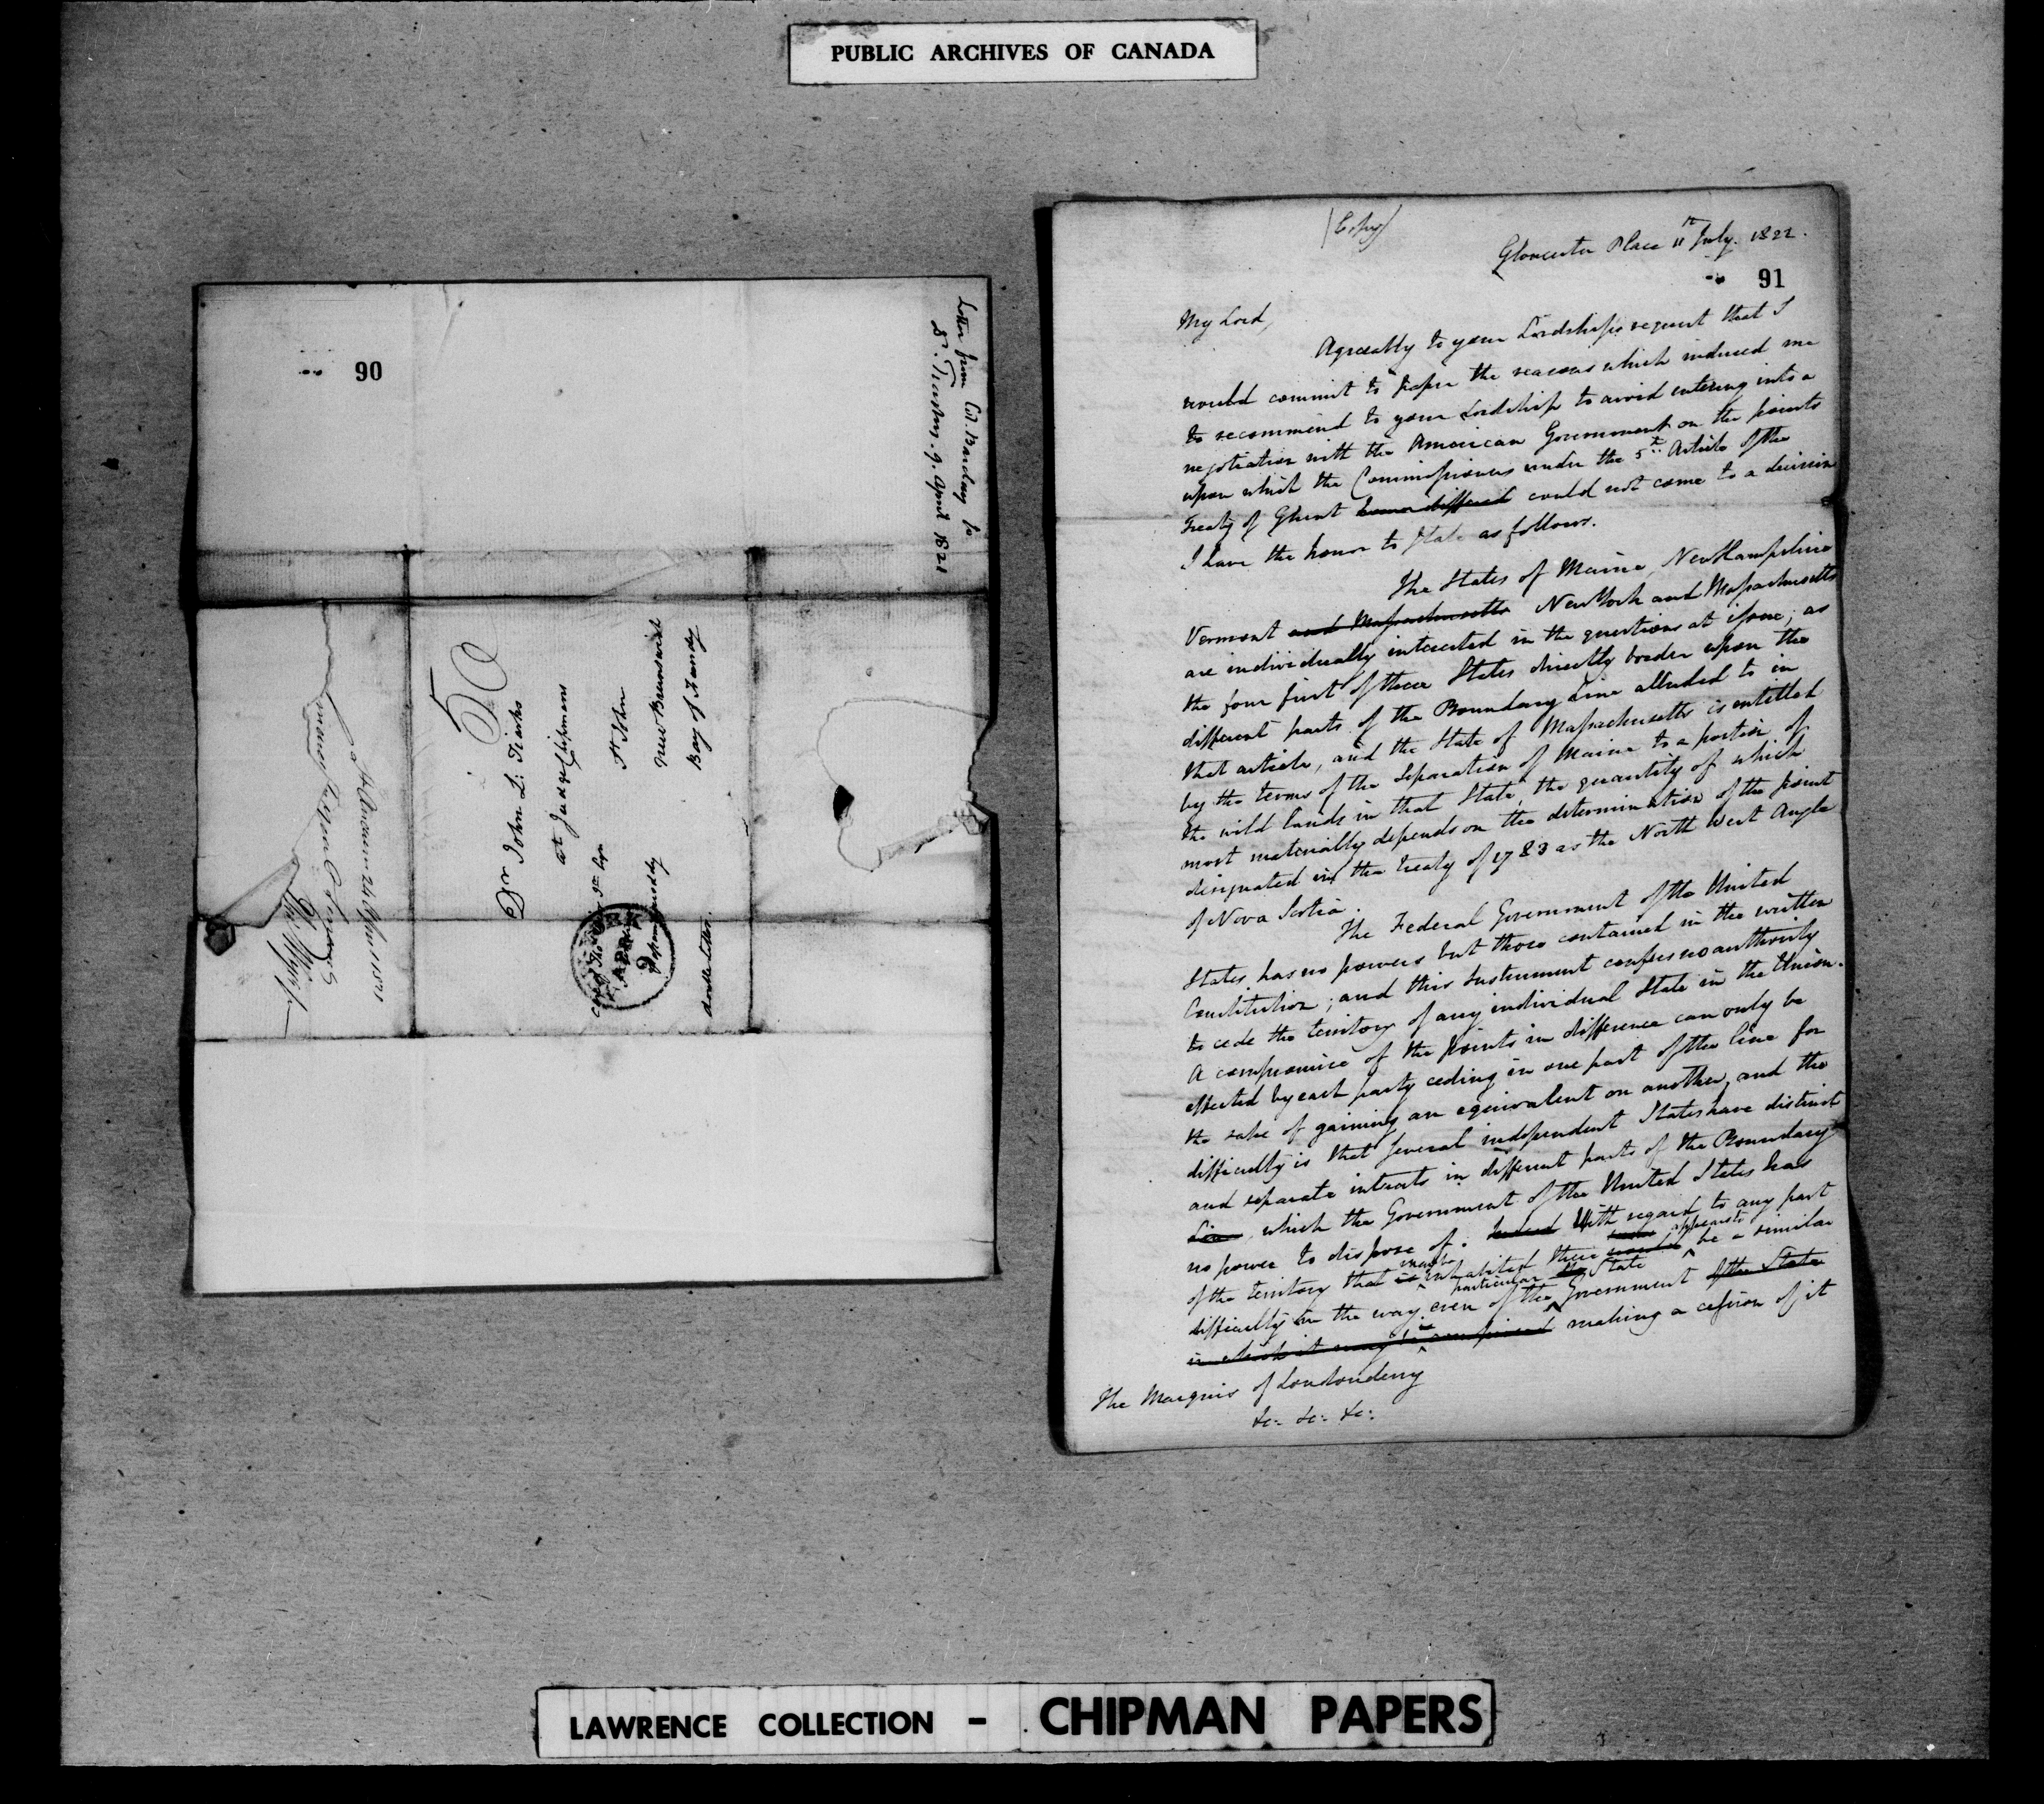 PUBLIC ARCHIVES OF CANADA
90
Letter from Col. Barclay to
Dr. Tiarks. 9. April 1821
50
Dr John L: Tiarks
at Judge Chipmans
St John
New Brunswick
Bay of Fundy
double letter.
APR
9
St Andrews 24 Apr. 1821
(Copy)
Gloucester Place 11th July. 1822.
91
My Lord,
Agreeably to your Lordships request that I
would commit to paper the reasons which induced me
to recommend to your Lordship to avoid entering into a
negotiation with the American Government on the points
upon which the Commissioners under the 5th Article of the
Treaty of Ghent have differed could not come to a decision
I have the honor to state as follows.
The States of Maine, New Hampshire
Vermont and Massachusetts New York and Massachusetts
are individually interested in the questions at issue; as
the four first of these States directly border upon the
different parts of the Boundary Line alluded to in
that article, and the State of Massachusetts is entitled
by the terms of the Separation of Maine to a portion of
the wild lands in that State, the quantity of which
most materially depends on the determination of the point
designated in the treaty of 1783 as the North West Angle
of Nova Scotia.
The Federal Government of the United
States has no powers but those contained in the written
Constitution; and this Instrument confers no authority
to cede the territory of any individual State in the Union.
A compromise of the points in difference can only be
effected by each party ceding in one part of the line for
the sake of gaining an equivalent on another, and the
difficulty is that several independent States have distinct
and separate interests in different parts of the Boundary
Line, which the Government of the United States has
no power to dispose of. Indeed With regard to any part
of the territory that is may be inhabited there would appears to be a similar
difficulty in the way even of the particular State Government of the State
in which it may be comprised making a cession of it
The Marquis of Londonderry
&c: &c: &c:
LAWRENCE COLLECTION - CHIPMAN PAPERS